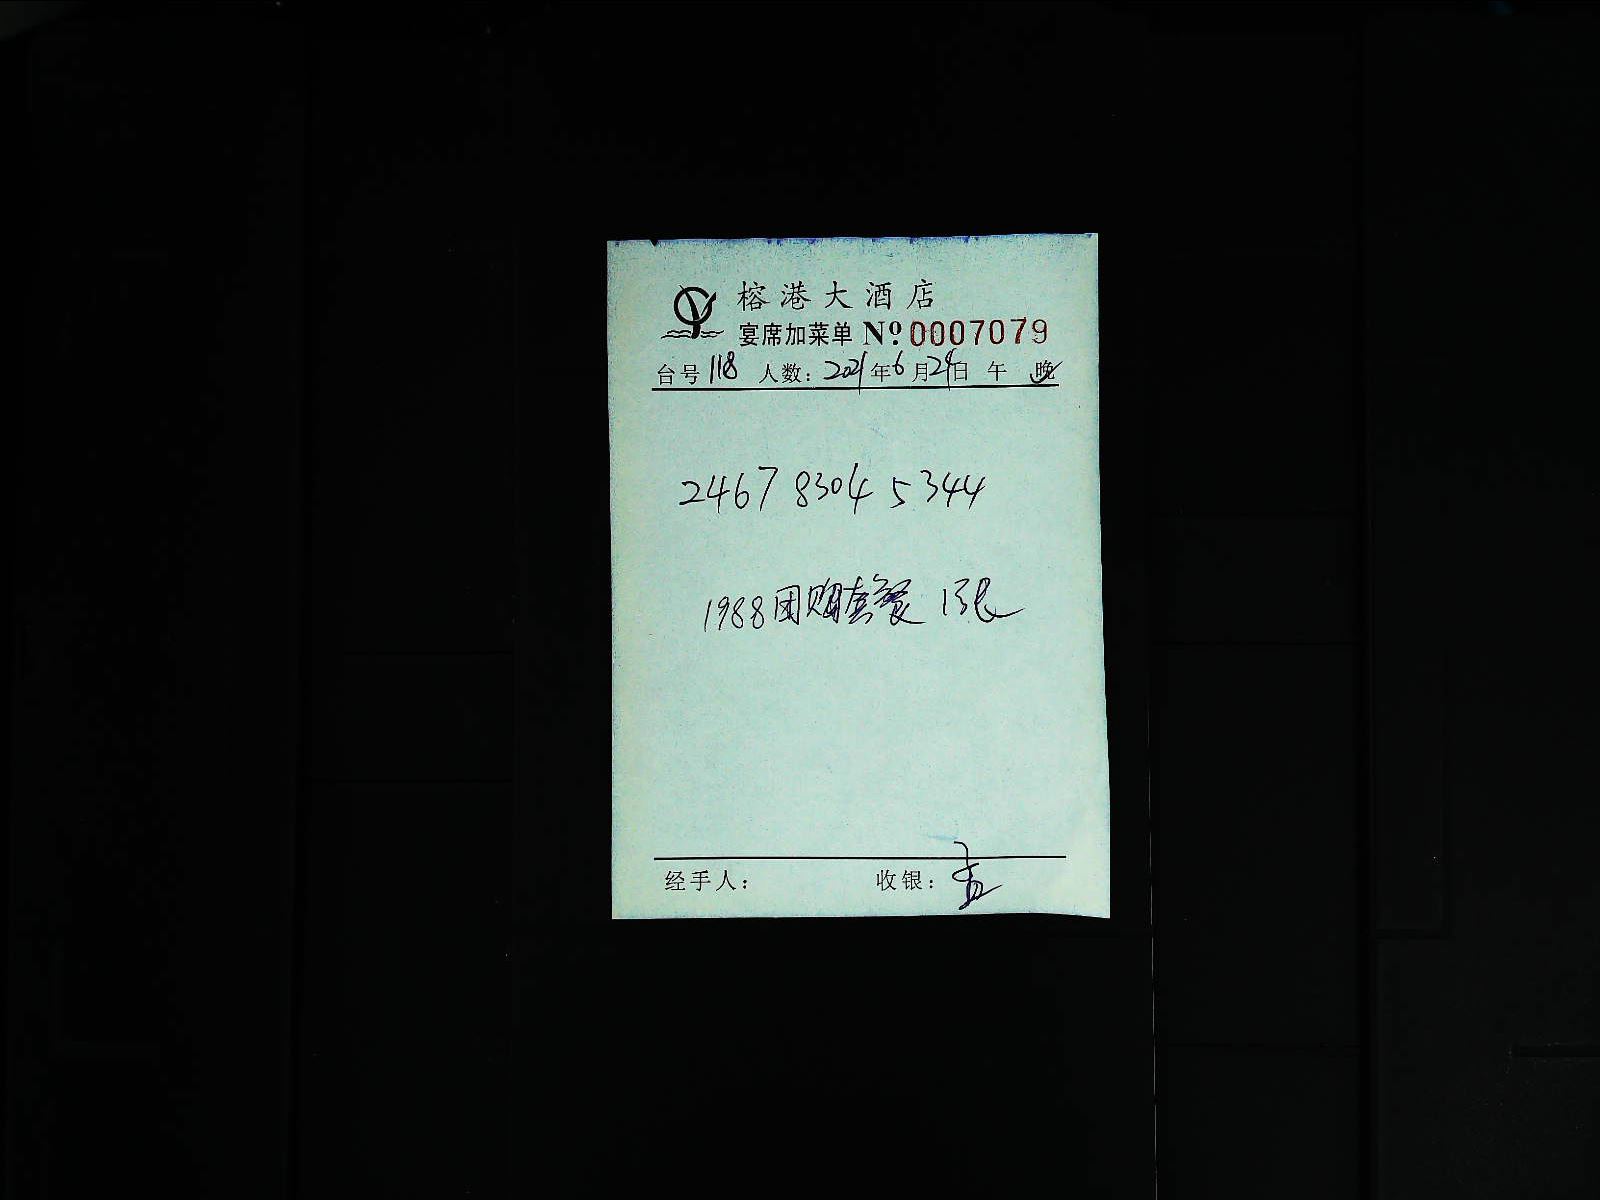 榕港大酒店
宴席加菜单 Nº 0007079
台号 118 人数: 2021年6月24日 午 晚
2467 8304 5344
1988团购套餐 1张
经手人: 收银: